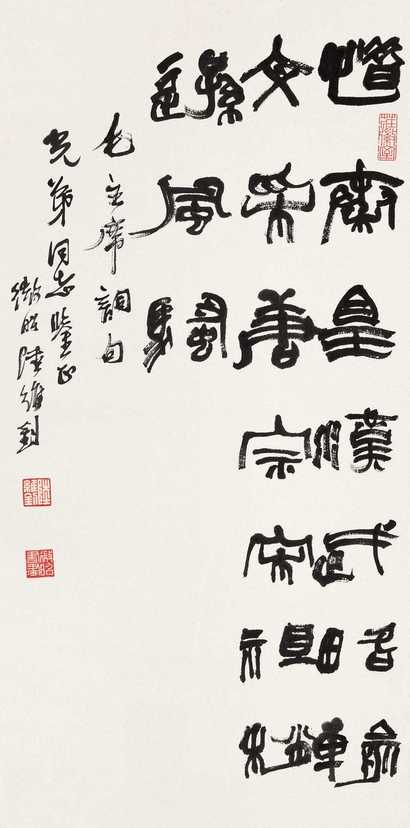 惜秦皇漢武略輸
文采唐宗宋祖稍
遜風騷
毛主席詞句
光第同志鑒正
微昭陸維釗